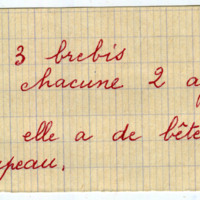 3 brebis
chacune 2 a
elle a de bête
upeau.